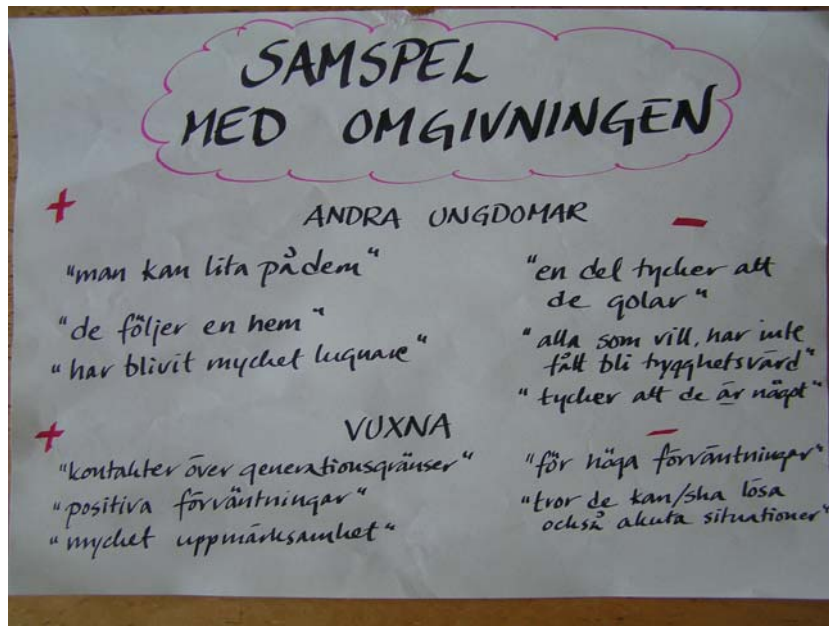 SAMSPEL
MED OMGIVNINGEN
+
ANDRA UNGDOMAR
−
"man kan lita på dem"
"de följer en hem"
"har blivit mycket lugnare"
"en del tycker att
de golar"
"alla som vill, har inte
fått bli trygghetsvärd"
"tycker att de är något"
+
VUXNA
−
"kontakter över generationsgränser"
"positiva förväntningar"
"mycket uppmärksamhet"
"för höga förväntningar"
"tror de kan/ska lösa
också akuta situationer"